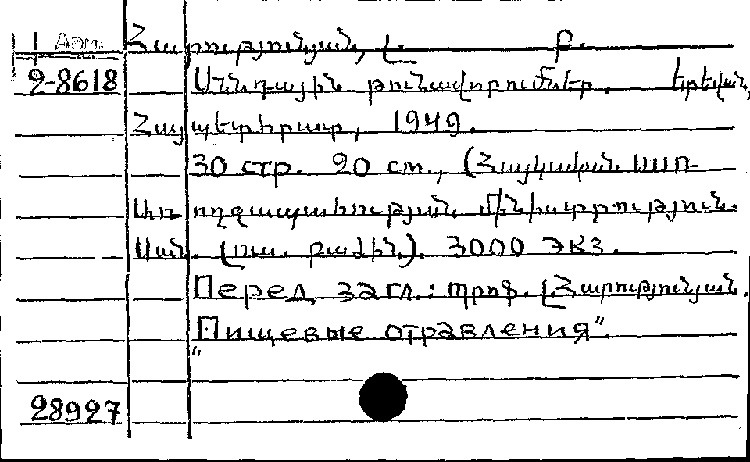 1 Арт. Հարությունյան, Լ. Բ.
2-8618 Սննդային թունավորումներ. Երևան,
Հայպետհրատ, 1949.
30 стр. 20 см., (Հայկական ՍՍՌ
Առողջապահության մինիստրություն.
Սան. լուս. բաժին.). 3000 экз.
Перед загл.: պրոֆ. Լ. Հարությունյան.
"Пищевые отравления"
28927